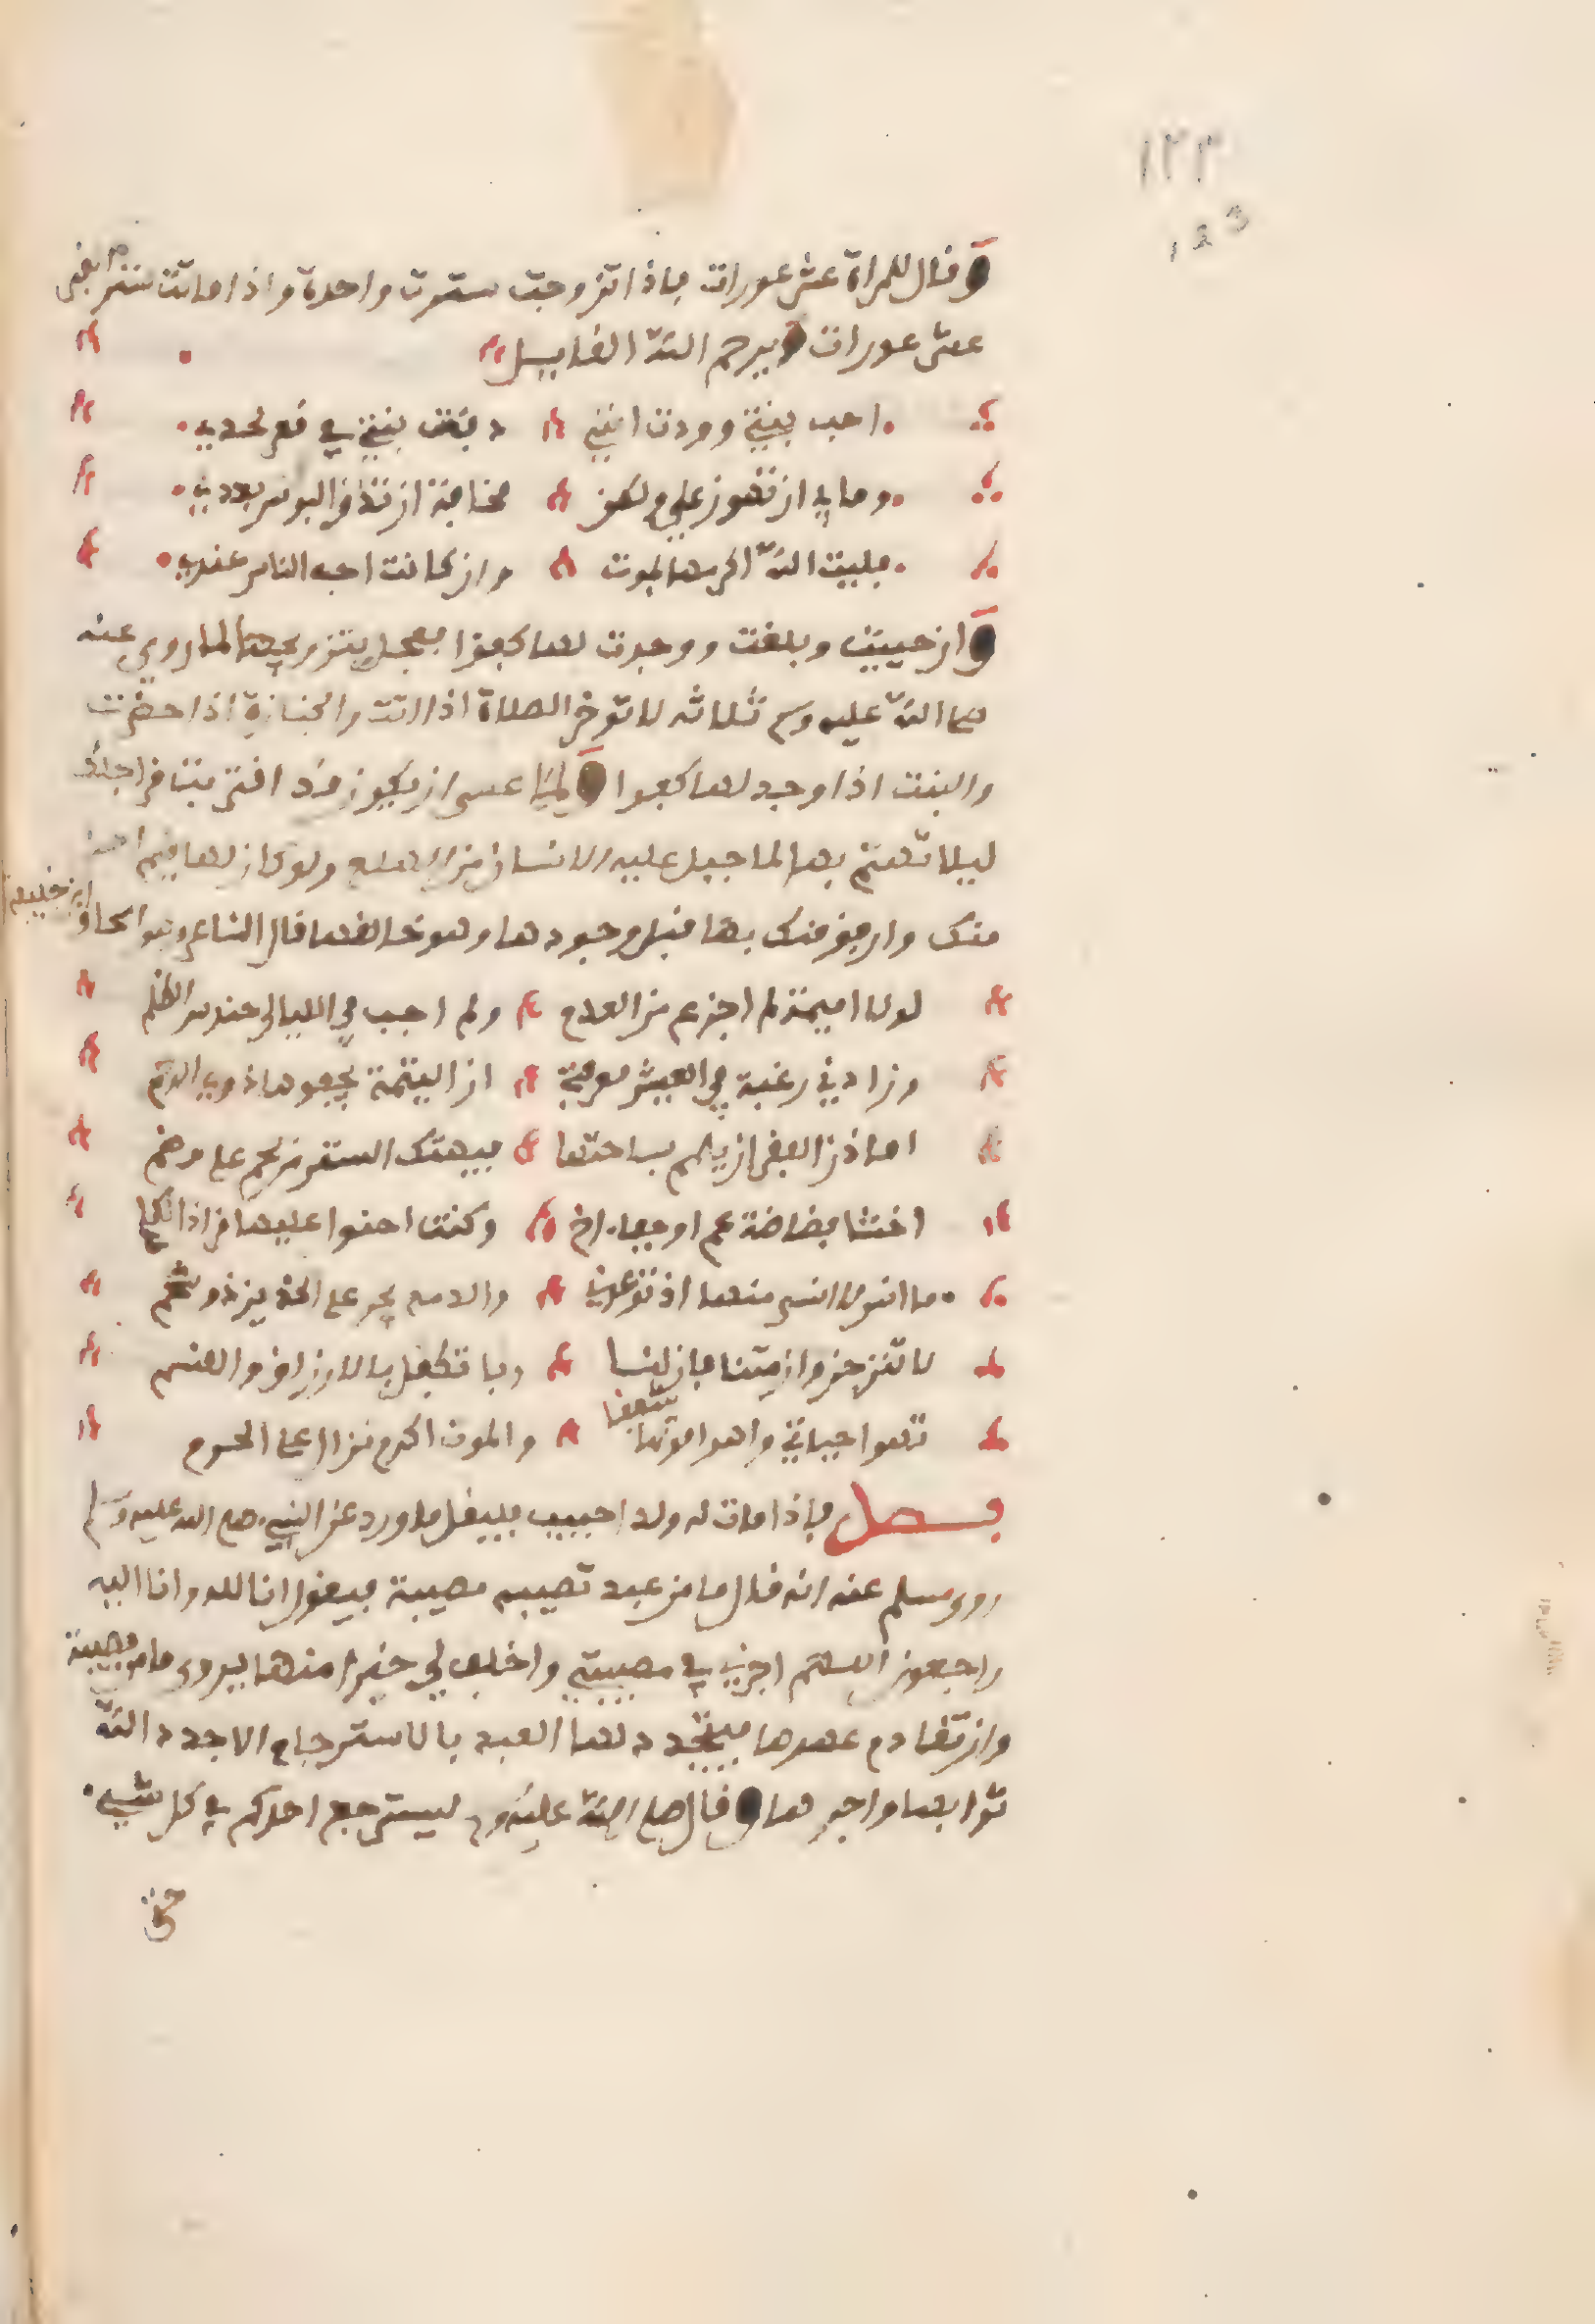 ١٢٣
123
وقال للمراة عشر عورات فاذا تزوجت سترت واحدة واذا ماتت ستر القبر
عشر عورات ويرحم الله القايل
احب بنيتي ووددت اني دفنت بنيتي في قعر لحدي
وما بي ان تهون علي ولكن مخافة ان تذوق البوس بعدي
فليت الله اكرمها بموت وان كانت احب الناس عندي
وان حييت وبلغت ووجدت لها كفوا فعجل بتزويجها لما روي عنه
صلى الله عليه وسلم ثلاثه لا توخر الصلاة اذا اتت والجنازة اذا حضرت
والبنت اذا وجد لها كفوا عسى ان يكون قد اقترب من اجلك
ليلا تهتم بها لما جبل عليه الانسان من الهلع ولو كان لها
منك وارفق منك بها قبل وجودها وهو خالقها قال الشاعر وهو اسحاق
ابن خليفة
لولا اميمة لم اجزع من العدم ولم اجب في الليالي حندس الظلم
وزادني رغبة في العيش معرفتي ان اليتيمة يجفوها ذوي الرحم
احاذر الفقر ان يلمم بساحتها فيهتك الستر من لحم على وضم
اخشا فظاظة عم او جفاء اخ وكنت احنوا عليها من اذا الكلم
ما انس لا انس منها اذ تودعني والدمع يجر على الخدين ذو سجم
لا تنزحن وان متنا فان لنا ربا تكفل بالارزاق والقسم
تهوا حياتي واهوا موتها شفقا والموت اكرم نزال على الحرم
فصل فاذا مات له ولد احبيب فليقل ما ورد عن النبي صلى الله عليه وسلم
روى مسلم عنه انه قال ما من عبد تصيبه مصيبة فيقول انا لله وانا اليه
راجعون اللهم اجرني في مصيبتي واخلف لي خيرا منها ويروى ما من مصيبة
وان تقادم عهدها فيجدد لها العبد بالاسترجاع الا جدد الله
ثوابها واجرها وقال صلى الله عليه وسلم ليسترجع احدكم في كل شيء
حتى